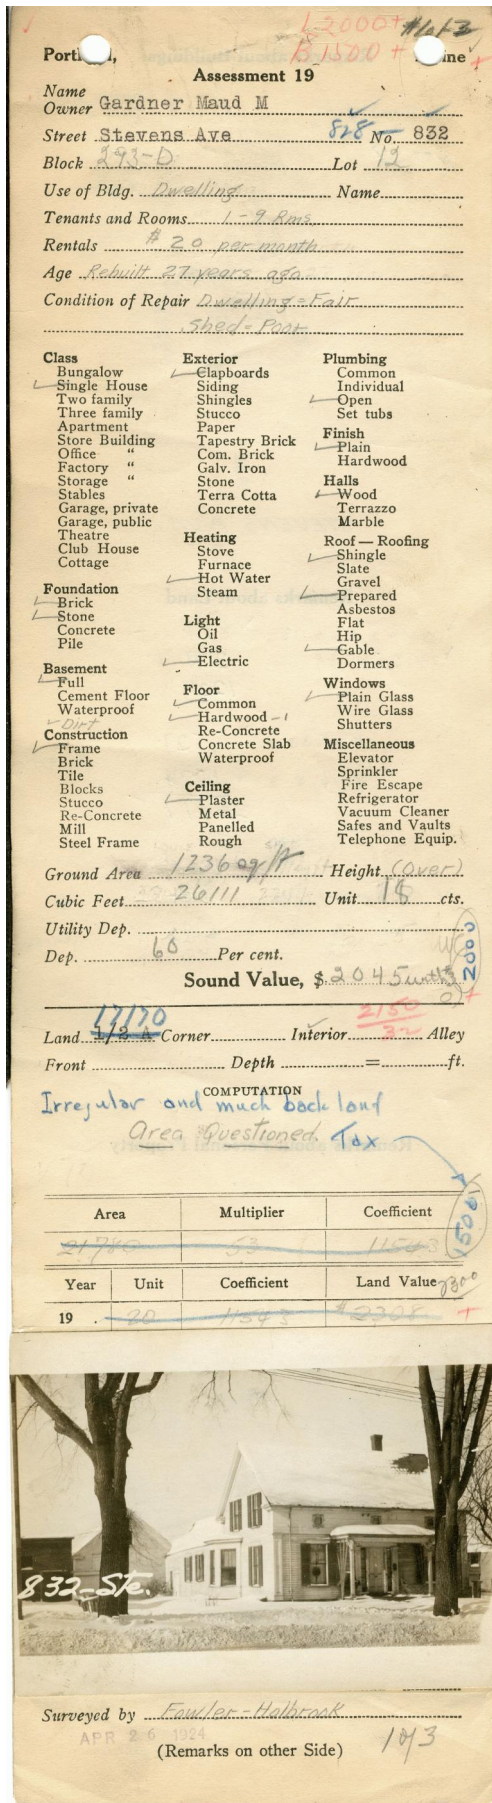 L 2000+ #1 of 3
B 1500 + +
Portl d, ine
Assessment 19
Name
Owner Gardner Maud M
Street Stevens Ave 828 No. 832
Block 293-D Lot 12
Use of Bldg. Dwelling Name
Tenants and Rooms 1-9 Rms.
Rentals $20 per month
Age Rebuilt 27 years ago
Condition of Repair Dwelling=Fair
Shed=Poor
Class
Bungalow
Single House
Two family
Three family
Apartment
Store Building
Office "
Factory "
Storage "
Stables
Garage, private
Garage, public
Theatre
Club House
Cottage
Foundation
Brick
Stone
Concrete
Pile
Basement
Full
Cement Floor
Waterproof
Dirt
Construction
Frame
Brick
Tile
Blocks
Stucco
Re-Concrete
Mill
Steel Frame
Exterior
Clapboards
Siding
Shingles
Stucco
Paper
Tapestry Brick
Com. Brick
Galv. Iron
Stone
Terra Cotta
Concrete
Heating
Stove
Furnace
Hot Water
Steam
Light
Oil
Gas
Electric
Floor
Common
Hardwood -1
Re-Concrete
Concrete Slab
Waterproof
Ceiling
Plaster
Metal
Panelled
Rough
Plumbing
Common
Individual
Open
Set tubs
Finish
Plain
Hardwood
Halls
Wood
Terrazzo
Marble
Roof — Roofing
Shingle
Slate
Gravel
Prepared
Asbestos
Flat
Hip
Gable
Dormers
Windows
Plain Glass
Wire Glass
Shutters
Miscellaneous
Elevator
Sprinkler
Fire Escape
Refrigerator
Vacuum Cleaner
Safes and Vaults
Telephone Equip.
Ground Area 1236 sq ft Height (Over)
Cubic Feet 26111 Unit 18 cts.
Utility Dep.
Dep. 60 Per cent.
2000
Sound Value, $ 2045
17170 2150
Land 1/2 A Corner Interior 32 Alley
Front Depth = ft.
COMPUTATION
Irregular and much back land
Area Questioned. Tax
1500
Area Multiplier Coefficient
21780 53 11543
Year Unit Coefficient Land Value 2300
19 . 20 11543 $2308 +
832-Ste.
Surveyed by Fowler-Holbrook
APR 26 1924
(Remarks on other Side) 1 of 3